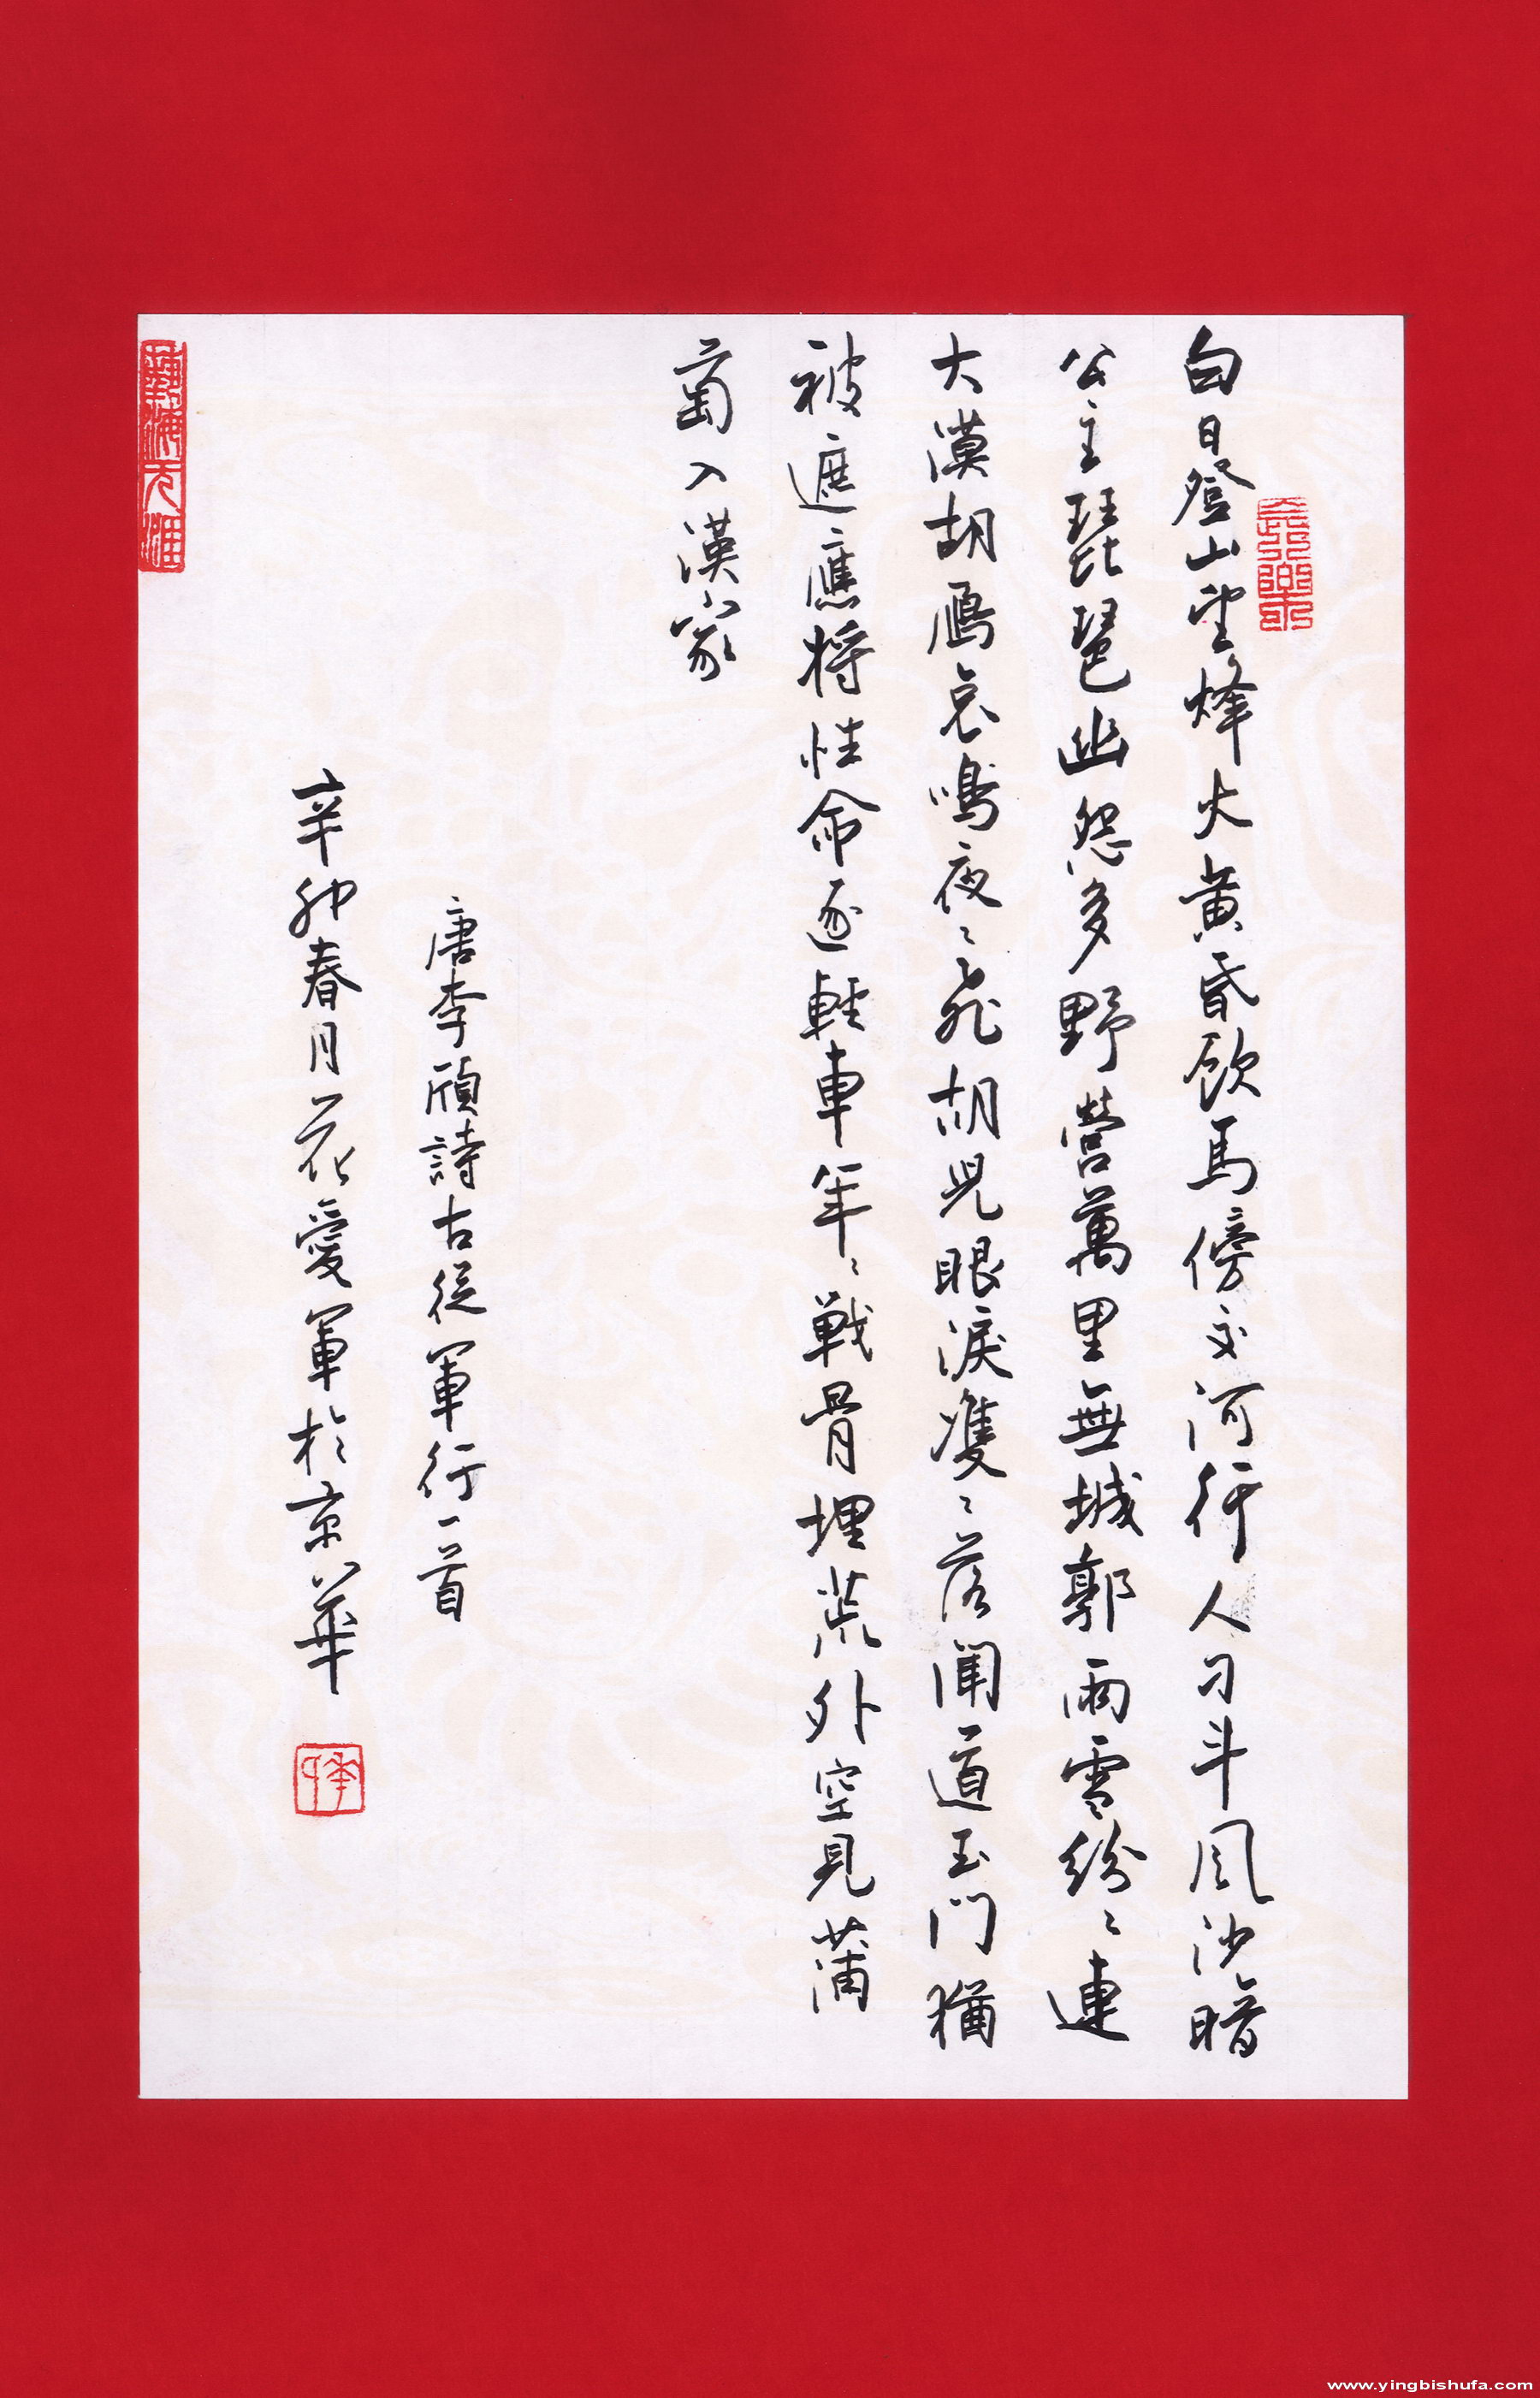 白日登山望烽火黃昏飲馬傍交河行人刁斗風沙暗
公主琵琶幽怨多野營萬里無城郭雨雪紛〻連
大漠胡鴈哀鳴夜〻飛胡兒眼淚雙〻落聞道玉門猶
被遮應將性命逐輕車年〻戰骨埋荒外空見蒲
萄入漢家
唐李頎詩古從軍行一首
辛卯春月花愛軍於京華
www.yingbishufa.com